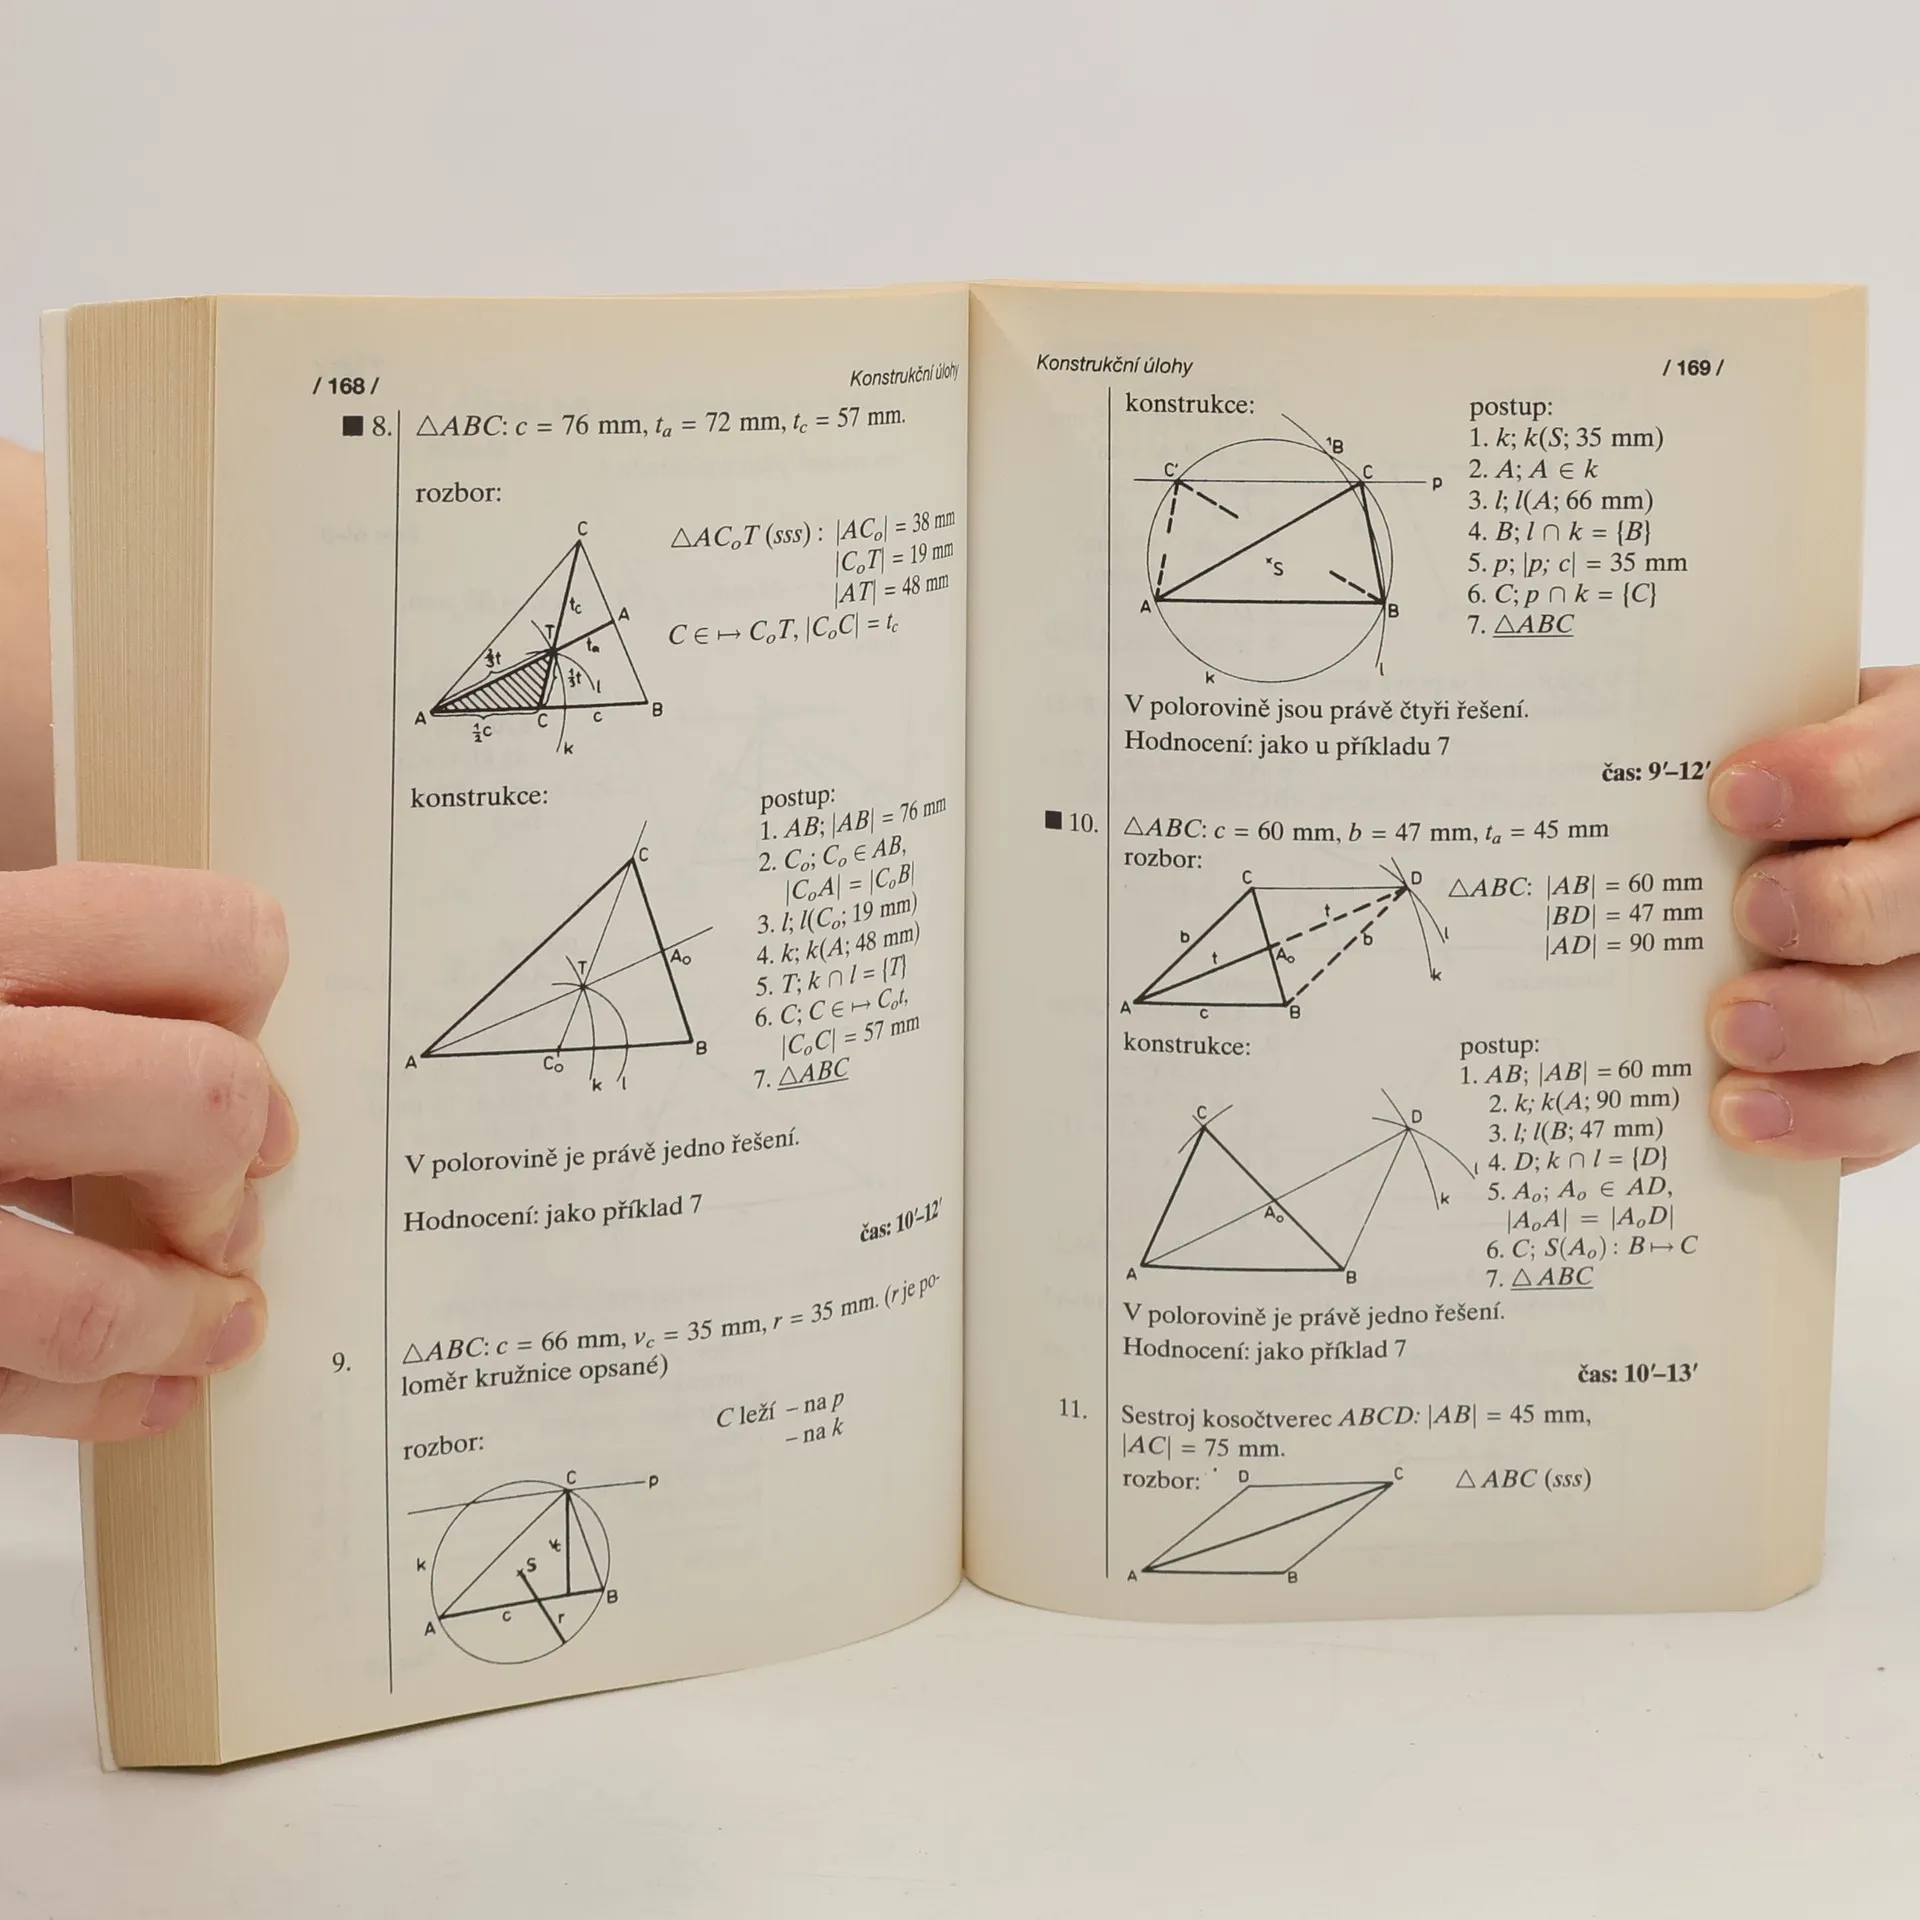 / 168 /
Konstrukční úlohy
8. △ABC: c = 76 mm, tₐ = 72 mm, t_c = 57 mm.
rozbor:
△ACₒT (sss) : |ACₒ| = 38 mm
|CₒT| = 19 mm
|AT| = 48 mm
C ∈ ↦ CₒT, |CₒC| = t_c
C
t_c
A
T
tₐ
⅓t
l
A
½c
C
c
B
k
konstrukce:
postup:
1. AB; |AB| = 76 mm
2. Cₒ; Cₒ ∈ AB,
|CₒA| = |CₒB|
3. l; l(Cₒ; 19 mm)
4. k; k(A; 48 mm)
5. T; k ∩ l = {T}
6. C; C ∈ ↦ Cₒt,
|CₒC| = 57 mm
7. △ABC
C
T
Aₒ
A
Cₒ
B
k l
V polorovině je právě jedno řešení.
Hodnocení: jako příklad 7
čas: 10′–12′
9. △ABC: c = 66 mm, v_c = 35 mm, r = 35 mm. (r je po-
loměr kružnice opsané)
C leží – na p
– na k
rozbor:
C
p
k
S
A
c
r
B
Konstrukční úlohy
/ 169 /
konstrukce:
¹B
C'
C
p
S
A
B
k
l
postup:
1. k; k(S; 35 mm)
2. A; A ∈ k
3. l; l(A; 66 mm)
4. B; l ∩ k = {B}
5. p; |p; c| = 35 mm
6. C; p ∩ k = {C}
7. △ABC
V polorovině jsou právě čtyři řešení.
Hodnocení: jako u příkladu 7
čas: 9′–12′
10. △ABC: c = 60 mm, b = 47 mm, tₐ = 45 mm
rozbor:
C
D
t
b
b
t
Aₒ
l
k
A
c
B
△ABC: |AB| = 60 mm
|BD| = 47 mm
|AD| = 90 mm
konstrukce:
postup:
1. AB; |AB| = 60 mm
2. k; k(A; 90 mm)
3. l; l(B; 47 mm)
4. D; k ∩ l = {D}
5. Aₒ; Aₒ ∈ AD,
|AₒA| = |AₒD|
6. C; S(Aₒ) : B ↦ C
7. △ABC
C
D
l
k
Aₒ
A
B
V polorovině je právě jedno řešení.
Hodnocení: jako příklad 7
čas: 10′–13′
11. Sestroj kosočtverec ABCD: |AB| = 45 mm,
|AC| = 75 mm.
rozbor:
D
C
△ ABC (sss)
A
B